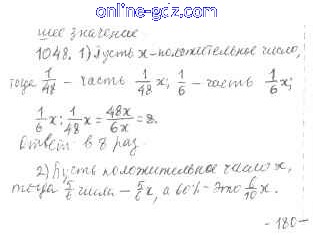 online-gdz.com
шее значение.
1048. 1) Пусть x - положительное число,
тогда 1/48 - часть 1/48 x; 1/6 - часть 1/6 x;
1/6 x : 1/48 x = 48x/6x = 8.
Ответ: в 8 раз.
2) Пусть положительное число x,
тогда 5/6 числа - 5/6 x, а 60% - это 6/10 x.
- 180 -